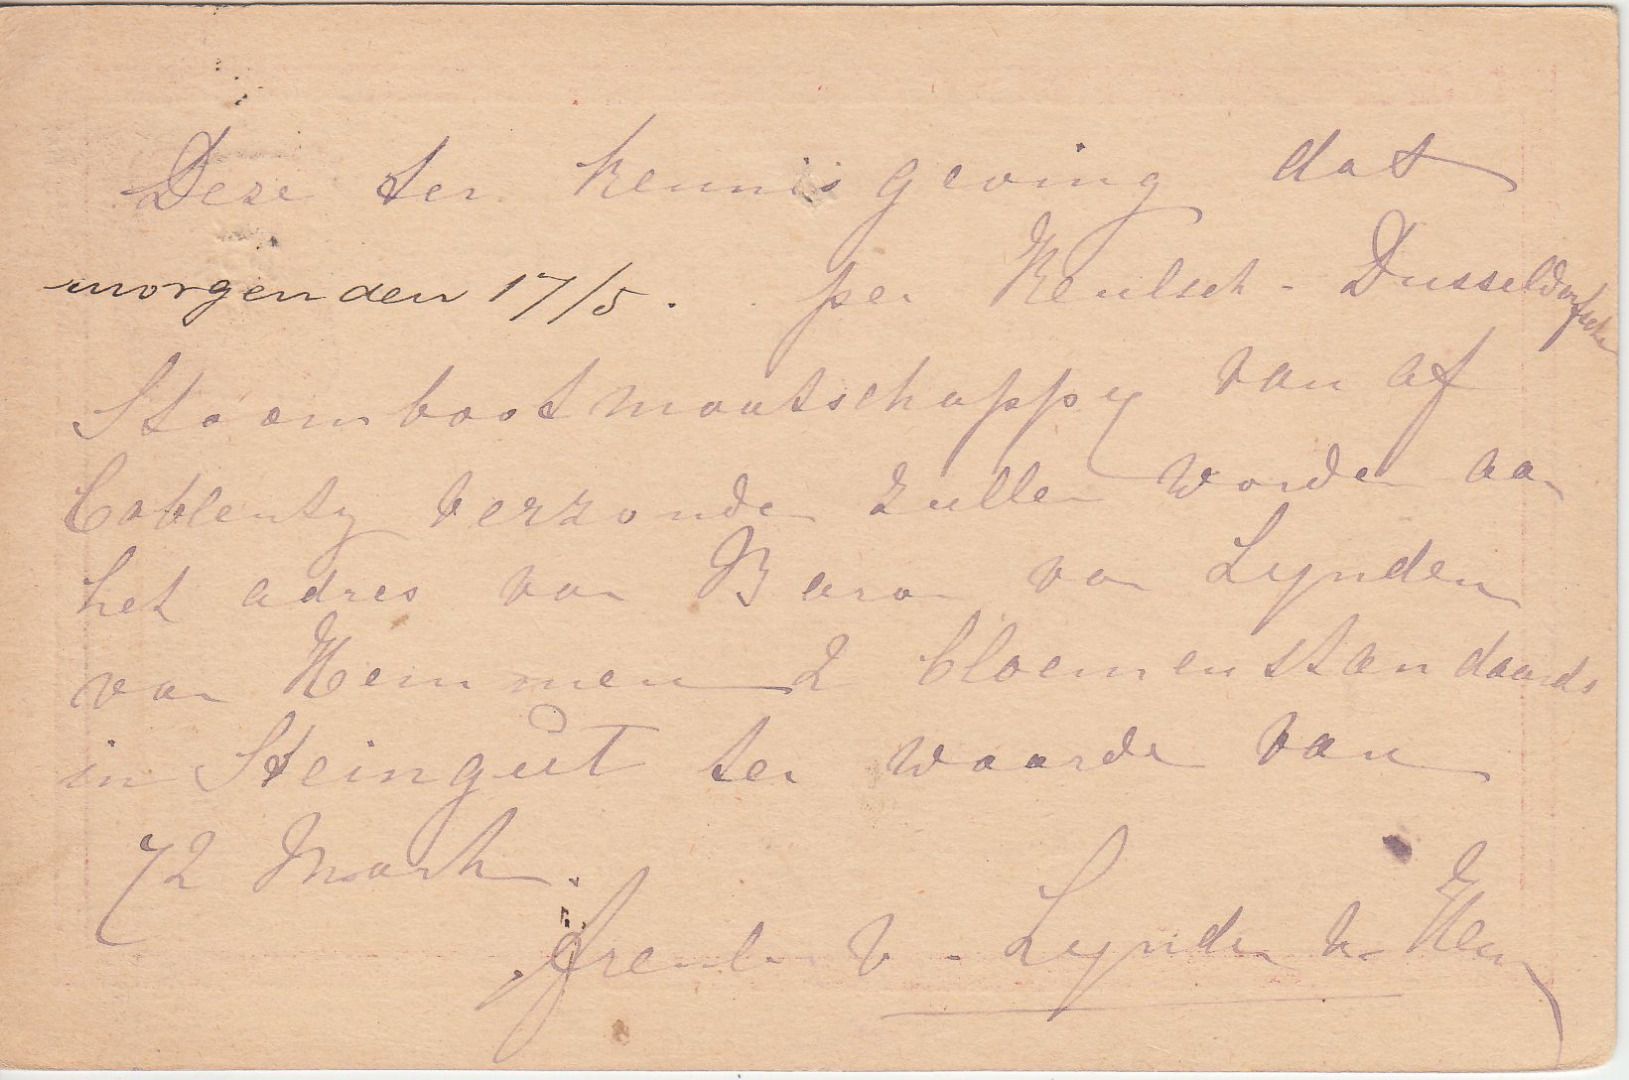 Deze ter kennisgeving dat
morgen den 17/5. per Keulsch - Dusseldorfsche
Stoombootmaatschappy van af
Coblentz verzonden zullen worden aan
het adres van Baron van Lynden
van Hemmen 2 bloemenstandaards
in Steingut ter waarde van
72 Mark.
v. Lynden v. Hem